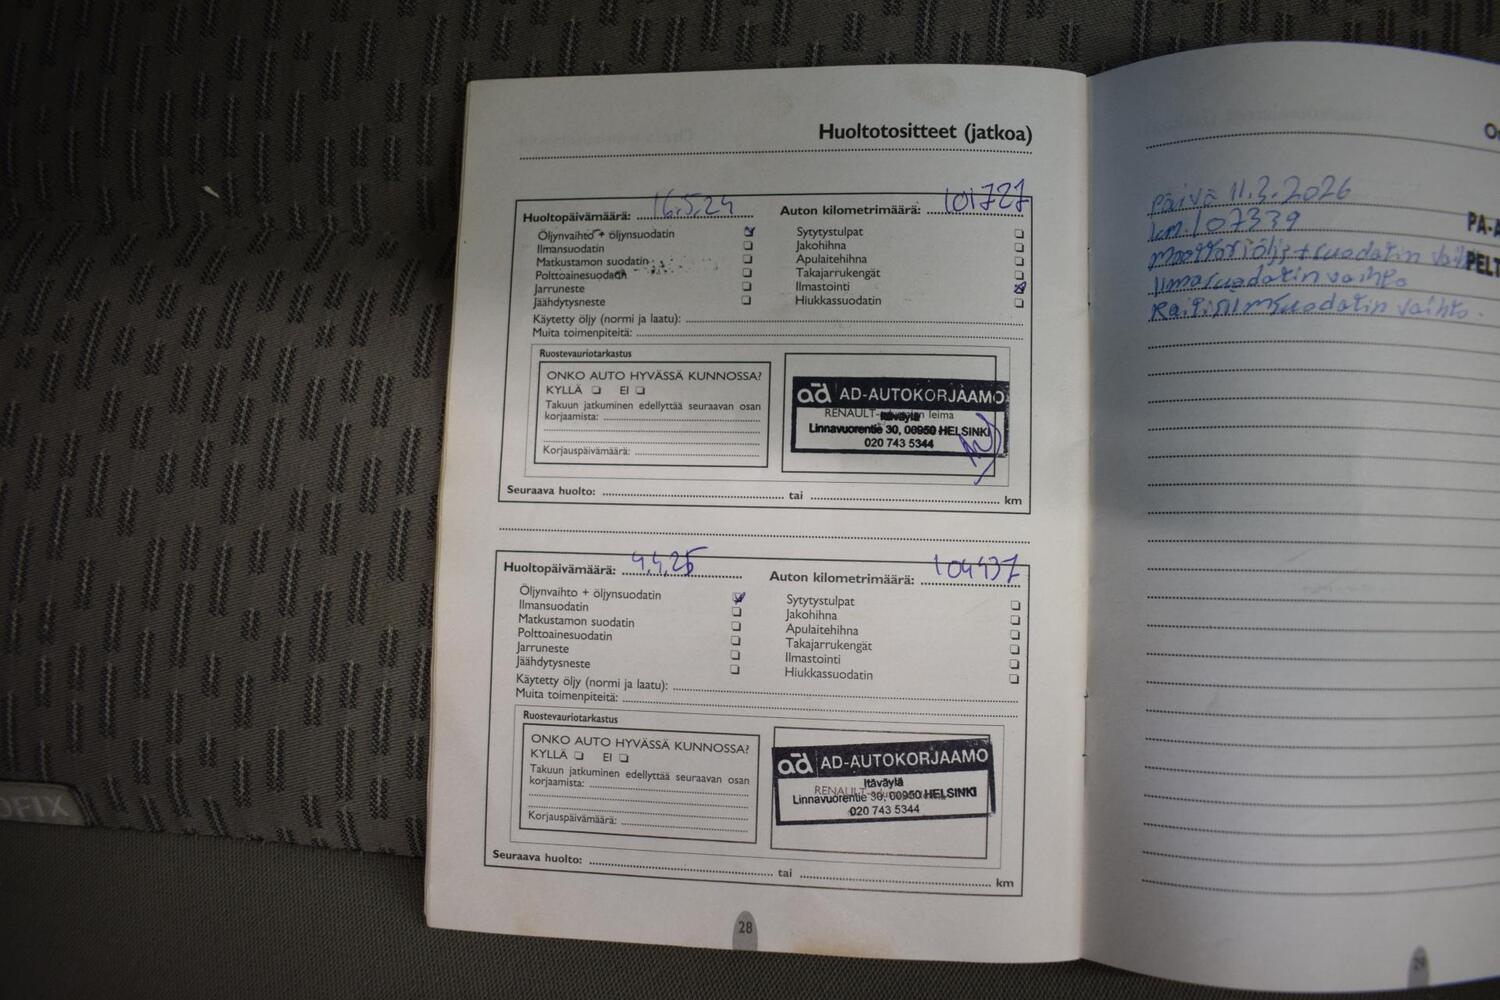 Huoltotositteet (jatkoa)
Huoltopäivämäärä: 16.5.24
Auton kilometrimäärä: 101727
Öljynvaihto + öljynsuodatin
Ilmansuodatin
Matkustamon suodatin
Polttoainesuodatin
Jarruneste
Jäähdytysneste
Sytytystulpat
Jakohihna
Apulaitehihna
Takajarrukengät
Ilmastointi
Hiukkassuodatin
Käytetty öljy (normi ja laatu):
Muita toimenpiteitä:
Ruostevauriotarkastus
ONKO AUTO HYVÄSSÄ KUNNOSSA?
KYLLÄ EI
Takuun jatkuminen edellyttää seuraavan osan
korjaamista:
Korjauspäivämäärä:
ad AD-AUTOKORJAAMO
RENAULT- leima
Itäväylä
Linnavuorentie 30, 00950 HELSINKI
020 743 5344
Seuraava huolto: tai km
Huoltopäivämäärä: 4.4.25
Auton kilometrimäärä: 104437
Öljynvaihto + öljynsuodatin
Ilmansuodatin
Matkustamon suodatin
Polttoainesuodatin
Jarruneste
Jäähdytysneste
Sytytystulpat
Jakohihna
Apulaitehihna
Takajarrukengät
Ilmastointi
Hiukkassuodatin
Käytetty öljy (normi ja laatu):
Muita toimenpiteitä:
Ruostevauriotarkastus
ONKO AUTO HYVÄSSÄ KUNNOSSA?
KYLLÄ EI
Takuun jatkuminen edellyttää seuraavan osan
korjaamista:
Korjauspäivämäärä:
ad AD-AUTOKORJAAMO
Itäväylä
RENAULT-
Linnavuorentie 30, 00950 HELSINKI
020 743 5344
Seuraava huolto: tai km
28
Päivä 11.2.2026
km. 107339
moottoriöljy + suodatin
Ilmasuodatin vaihto
Raitisilmsuodatin vaihto.
PA-A
PELT
29
OFIX